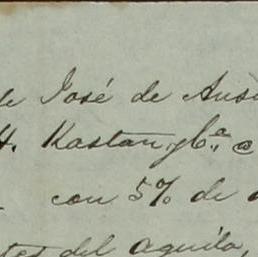 de José de Ans
H. Kastan y Cª @
con 5% de
tes del aguila,